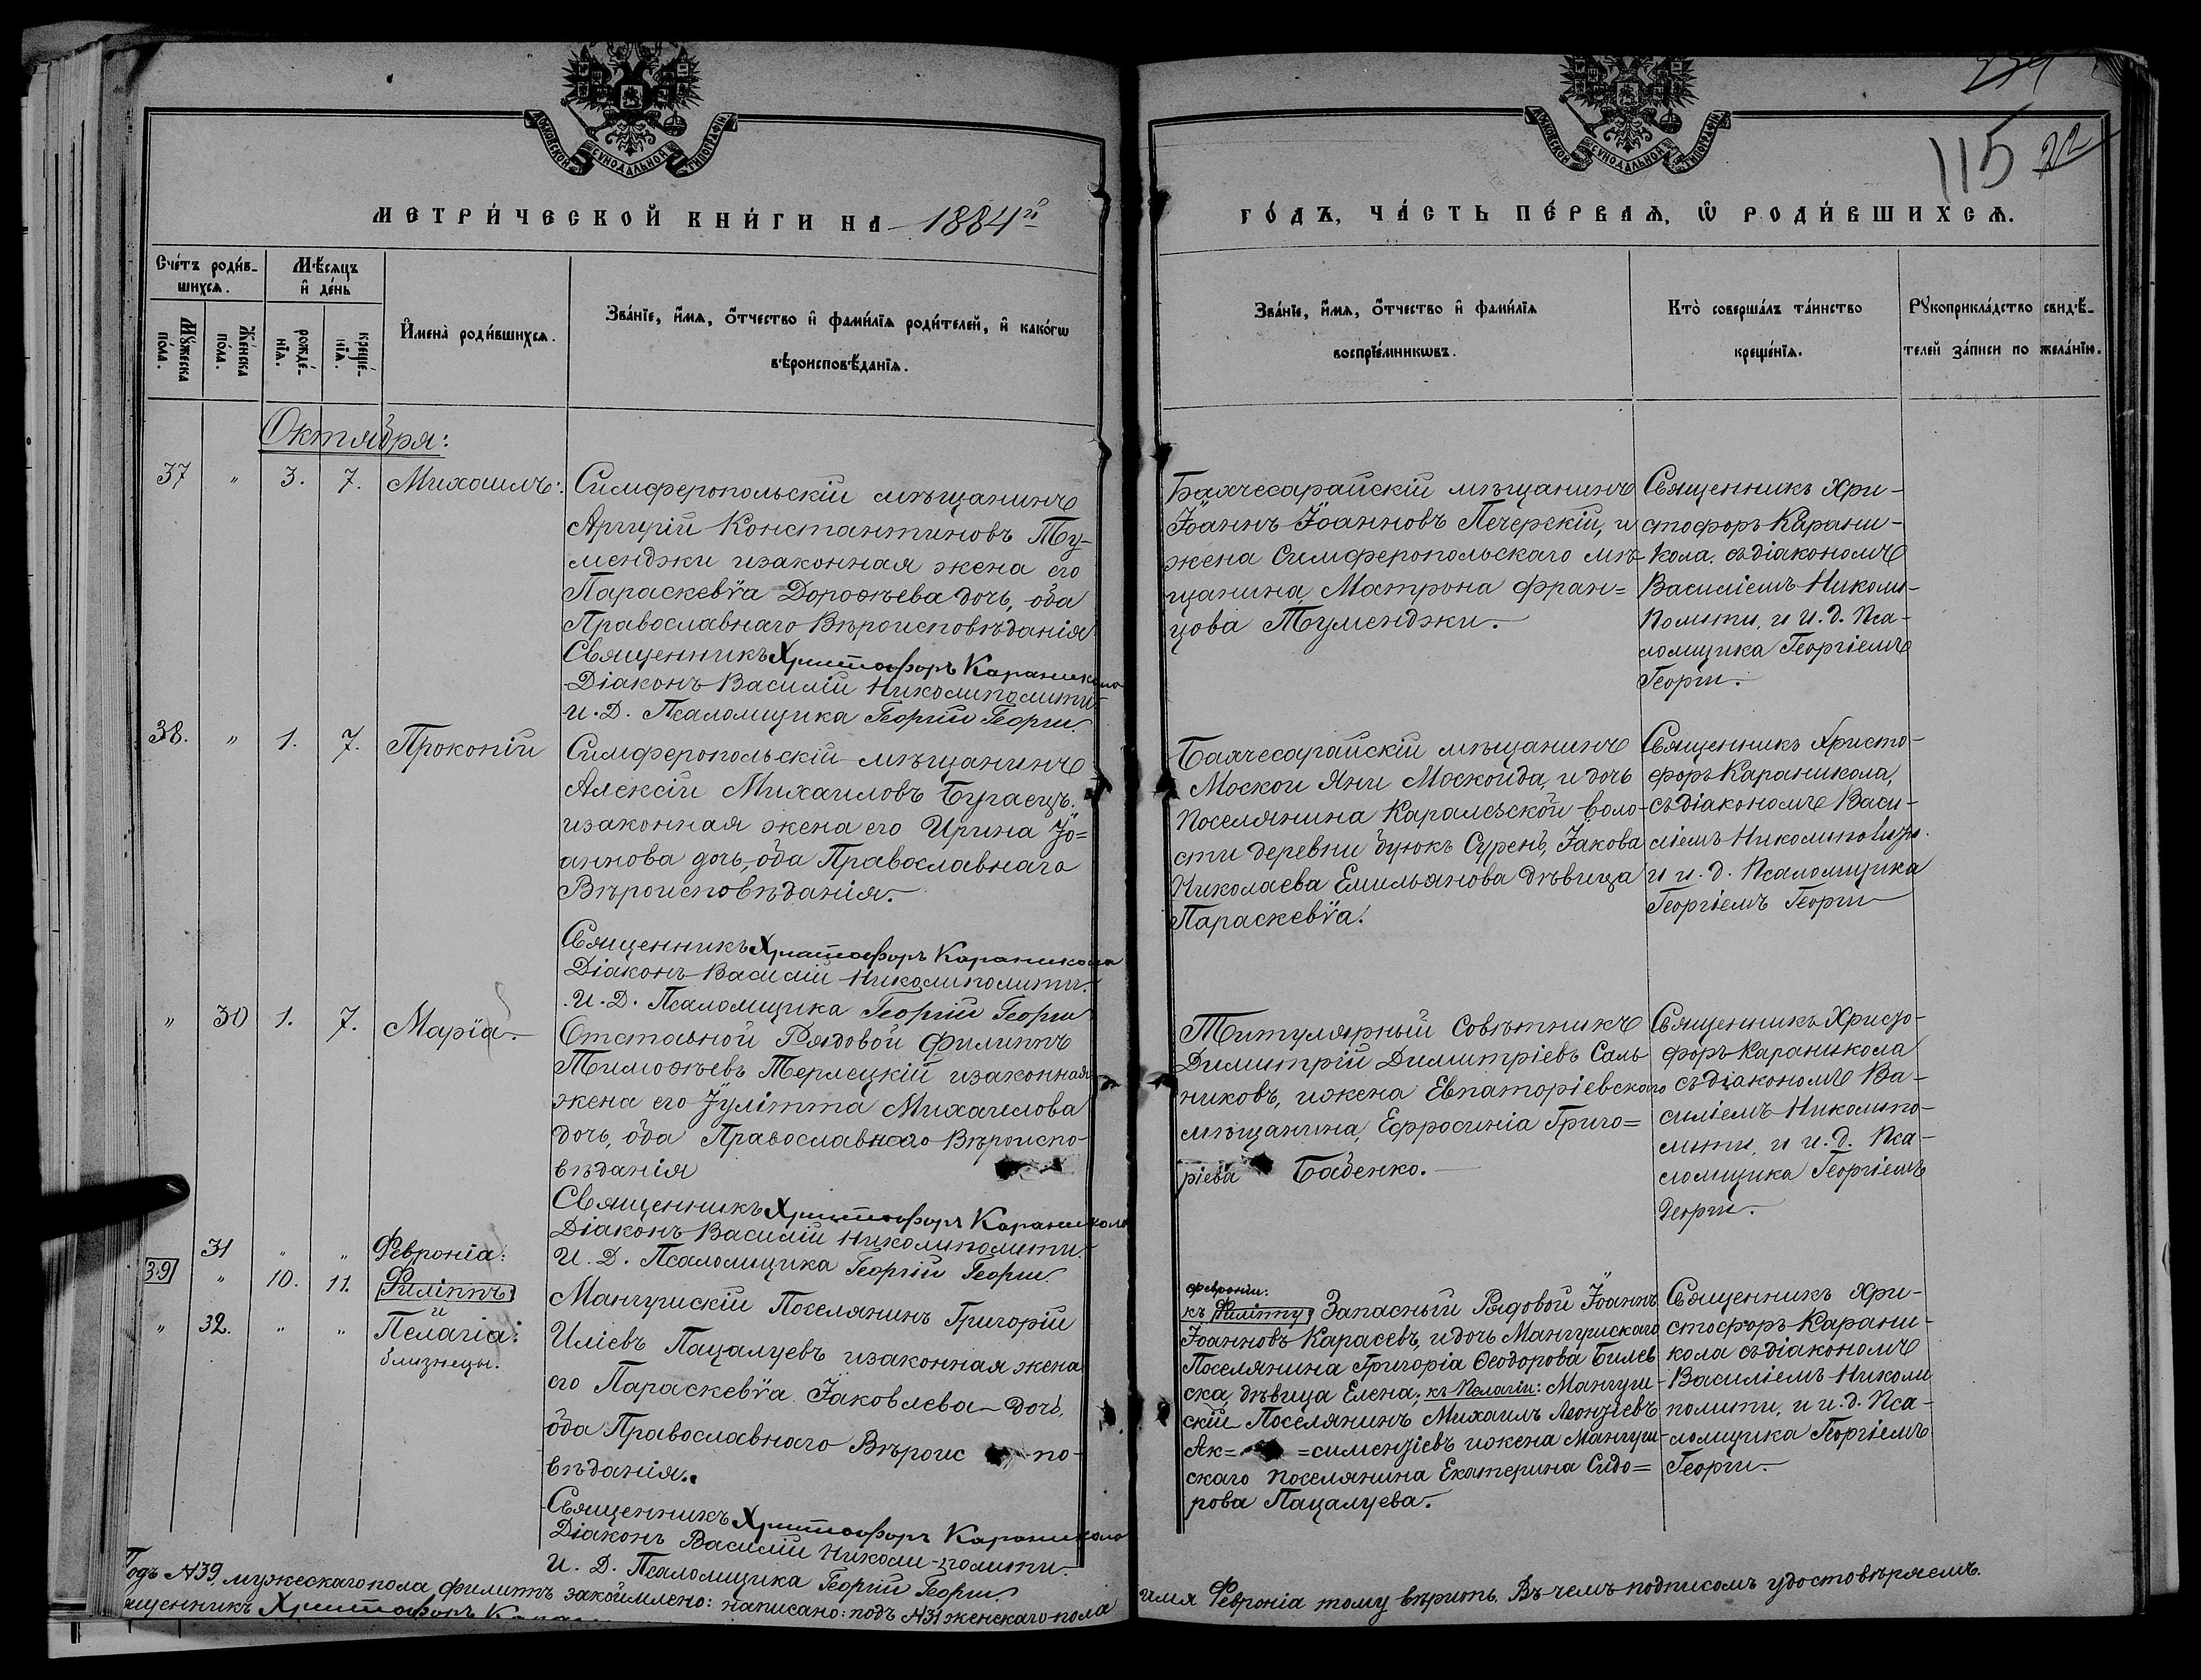 МОСКОВСКОЙ СУНОДАЛЬНОЙ ТИПОГРАФІИ
МЕТРИ́ЧЕСКОЙ КНИ́ГИ НА 1884й
Сче́тъ роди́в-
шихсѧ.
Мѣ́сяцъ
и҆ де́нь
Мꙋ́жеска
по́ла.
Же́нска
по́ла.
рожде́-
нїѧ.
креще́-
нїѧ.
И҆мена̀ роди́вшихсѧ.
Зва́нїе, и҆́мѧ, ѻ҆́тчество и҆ фами́лїѧ роди́телей, и҆ како́гѡ
вѣроисповѣ́данїѧ.
Октября:
37 " 3. 7. Михаилъ:
Симферопольскій мѣщанинъ
Аргирій Константиновъ Ту-
менджи изаконная жена его
Параскевѵа Дороѳѣева дочь, оба
Православнаго Вѣроисповѣданія
Священникъ Христофоръ Караникола
Діаконъ Василій Николиполити
И. Д. Псаломщика Георгій Георги.
38. " 1. 7. Прокопій
Симферопольскій мѣщанинъ
Алексій Михаиловъ Бугаецъ.
изаконная жена его Ирина Іо=
аннова дочь, оба Православнаго
Вѣроисповѣданія.
Священникъ Христофоръ Караникола
Діаконъ Василій Николиполити.
И. Д. Псаломщика Георгій Георги
" 30 1. 7. Марїа
Отставной Рядовой Филиппъ
Тимоѳѣевъ Терлецкій изаконная
жена его Іуліттa Михаилова
дочь, оба Православнаго Вѣроиспо-
вѣданія
Священникъ Христофоръ Караникола
Діаконъ Василій Николиполити.
И. Д. Псаломщика Георгій Георги.
31 " " Февронія:
39 " 10. 11. Филіппъ
и
" 32. " " Пелагіа:
близнецы.
Мангушскій Поселянинъ Григорій
Иліевъ Пацалуевъ изаконная жена
его Параскевѵа Іаковлева дочь,
оба Православнаго Вѣроис по-
вѣданія.
Священникъ Христофоръ Караникола
Діаконъ Василій Николи-политі.
И. Д. Псаломщика Георгій Георги.
Подъ №39, мужескаго пола Филиппъ закоймлено: написано: подъ №31 женскаго пола
ященникъ Христофоръ
115 22
МОСКОВСКОЙ СУНОДАЛЬНОЙ ТИПОГРАФІИ
ГО́ДЪ, ЧА́СТЬ ПЕ́РВАѦ, Ѡ҆ РОДИ́ВШИХСѦ.
Зва́нїе, и҆́мѧ, ѻ҆́тчество и҆ фами́лїѧ
воспрїе́мникѡвъ.
Кто̀ соверша́лъ та́инство
креще́нїѧ.
Рꙋкоприкла́дство свидѣ́-
телей за́писи по жела́нїю.
Бахчесарайскій мѣщанинъ
Іоаннъ Іоанновъ Печерскій, и
жена Симферопольскаго мѣ-
щанина, Матрона Фран=
цова Туменджи.
Священникъ Хри-
стофоръ Карани-
кола. съ діакономъ
Василіемъ Николи-
Политі, и И. д. Пса-
ломщика Георгіемъ
Георги.
Бахчесарайскій мѣщанинъ
Москои Яни Москоида, и дочь
Поселянина Каралезской воло-
сти деревни Буюкъ Сурень, Іакова
Николаева Емильянова дѣвица
Параскевѵа.
Священникъ Христо-
форъ Караникола,
съ діакономъ Васи-
ліемъ Николиполити.
и и. д. Псаломщика
Георгіемъ Георги
Титулярный Совѣтникъ
Димитрій Димитріевъ Саль
никовъ, ижена Евпаторіевскаго
мѣщанина, Ефросинія Григо=
ріева Баденко.
Священникъ Христо-
форъ Караникола
съ діакономъ Ва-
силіемъ Николипо-
лити, и и. д. Пса-
ломщика Георгіемъ
Георги.
Февроніи:
къ Филіппу Запасный Рядовой Іоаннъ
Іоанновъ Карасевъ, идочь Мангушскаго
Поселянина Григорія Ѳеодорова Билев
ска, дѣвица Елена; къ Пелагіи: Мангуш-
скій Поселянинъ Михаилъ Леонтіевъ
Ак= =симентіевъ ижена Мангуш-
скаго поселянина Екатерина Сидо=
рова Пацалуева.
Священникъ Хри-
стофоръ Карани-
кола съ діакономъ
Василіемъ Николи
полити, и и. д. Пса-
ломщика Георгіемъ
Георги.
имя Февронія тому вѣрить. Въ чемъ подписомъ удостовѣряемъ.